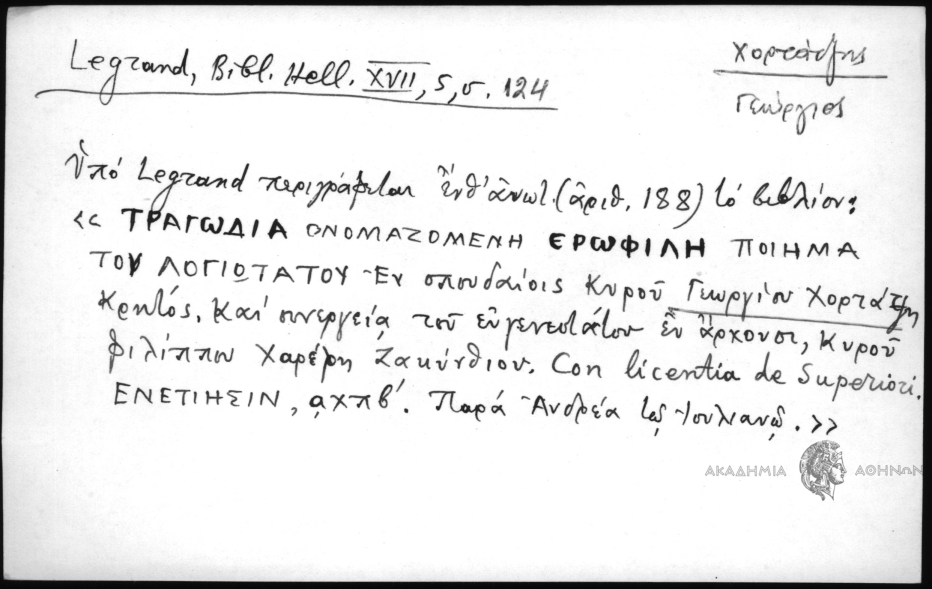 Legrand, Bibl. Hell. XVII, 5, σ. 124
Χορτάτζης
Γεώργιος
Ὑπό Legrand περιγράφεται ἔνθ' ἀνωτ. (ἀριθ. 188) τό βιβλίον:
«ΤΡΑΓΩΔΙΑ ΟΝΟΜΑΖΟΜΕΝΗ ΕΡΩΦΙΛΗ ΠΟΙΗΜΑ
ΤΟΥ ΛΟΓΙΩΤΑΤΟΥ Ἐν σπουδαίοις Κυροῦ Γεωργίου Χορτάτζη
Κρητός. Καί συνεργείᾳ τοῦ εὐγενεστάτου ἐν ἄρχουσι, Κυροῦ
Φιλίππου Χαρέρη Ζακύνθιου. Con licentia de Superiori.
ΕΝΕΤΙΗΣΙΝ, αχπβ'. Παρά Ἀνδρέα τῷ Ἰουλιανῷ.»
ΑΚΑΔΗΜΙΑ ΑΘΗΝΩΝ